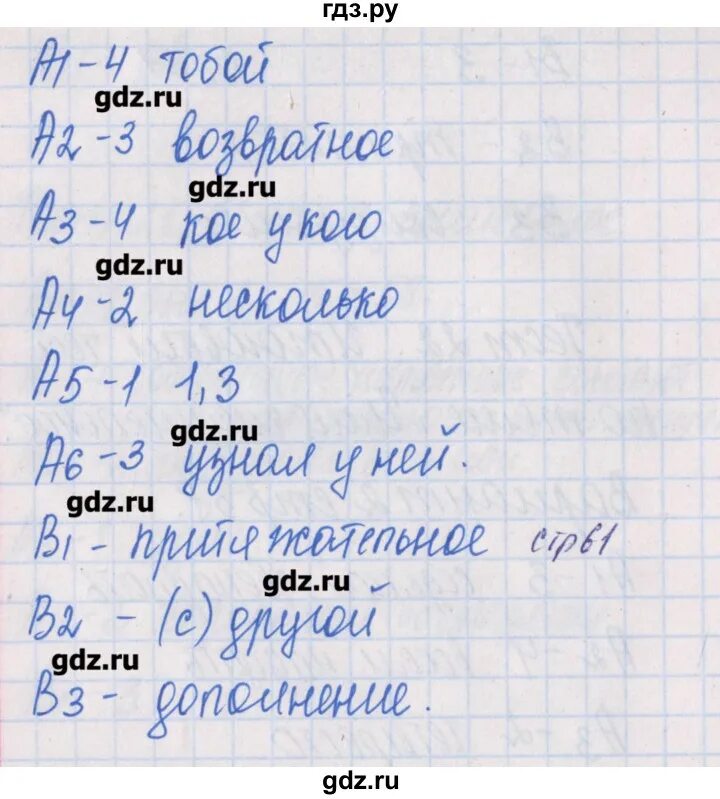 гдз.ру
А1 - 4 тобой
gdz.ru
А2 - 3 возвратное
gdz.ru
А3 - 4 кое у кого
gdz.ru
А4 - 2 несколько
А5 - 1 1,3
gdz.ru
А6 - 3 узнал у ней.
gdz.ru
В1 - притяжательное стр 61
gdz.ru
В2 - (с) другой
gdz.ru
В3 - дополнение.
gdz.ru